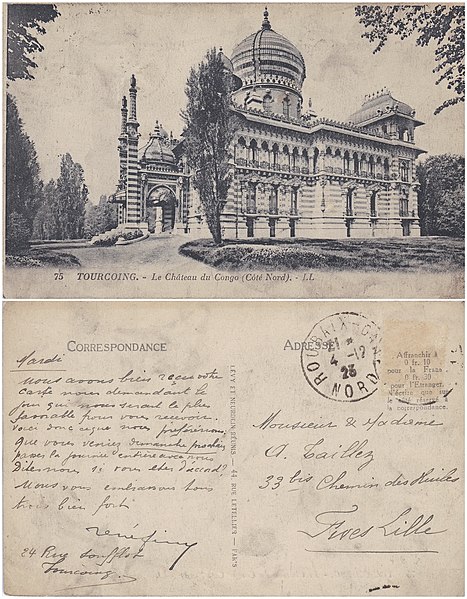 75 TOURCOING. - Le Château du Congo (Côté Nord). - LL
CORRESPONDANCE
ADRESSE
Mardi
Nous avons bien reçu votre
carte nous demandant le
jour que nous serait le plus
favorable pour vous recevoir.
Voici donc ce que nous préférerions
que vous veniez dimanche prochain
passer la journée entière avec nous
Dites nous si vous êtes d'accord.
Nous vous embrassons tous
trois bien fort
24 Rue Soufflot
Tourcoing
LEVY ET NEURDEIN RÉUNIS - 44, RUE LETELLIER - PARIS
ROUBAIX-GARE
4 -12
23
NORD
Affranchir à
0 fr. 10
pour la France
0 fr. 30
pour l'Étranger.
N'écrire que sur
le côté réservé
à la correspondance.
Monsieur & Madame
A. Taillez
33 bis Chemin des
Fives Lille